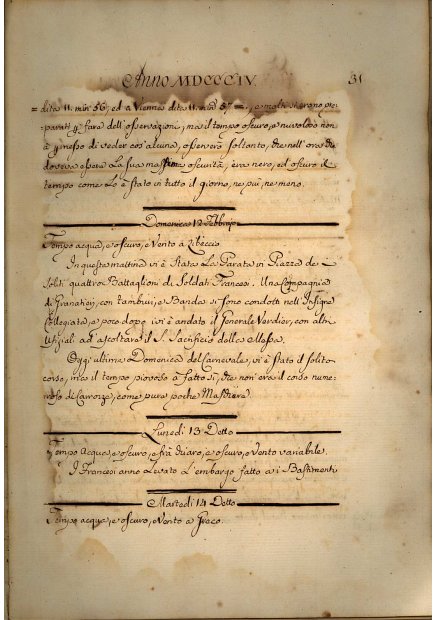 Anno MDCCCIV.
31
dita 11. min: 56, ed a Vienna dita 11. min: 57 =, e molti si erono pre=
parati p. fara dell'osservazioni, ma il tempo oscuro, e nuvoloso non
à p.messo di veder cos'alcuna, osservera soltanto, che nell'ora che
doveva essere la sua massima oscurità, era nero, ed oscuro il
tempo come lo è stato in tutto il giorno, ne più, ne meno.
Domenica 12 Febbrajo
Tempo acqua, e oscuro, e Vento a Libeccio
In questa mattina vi è stata la Parata in Piazza de
Soliti quattro Battaglioni di Soldati Francesi. Una Compagnia
di Granatieri, con tamburi, e Banda si sono condotti nell'Insigne
Collegiata, e poco dopo ivi è andato il Generale Verdier, con altri
Ufizial ad ascoltara il S. Sacrificio della Messa.
Oggi ultima Domenica del Carnevale, vi è stato il solito
corso, ma il tempo piovoso à fatto sì, che non era il corso nume=
roso di Carrozze, come pure poche Maschere.
Lunedì 13 Detto
Tempo Acqua, e oscuro, e frà chiaro, e oscuro, e Vento variabile.
I Francesi anno Levato L'embargo fatto a i Bastimenti
Martedì 14 Detto
Tempo acqua, e oscuro, e Vento a Greco.